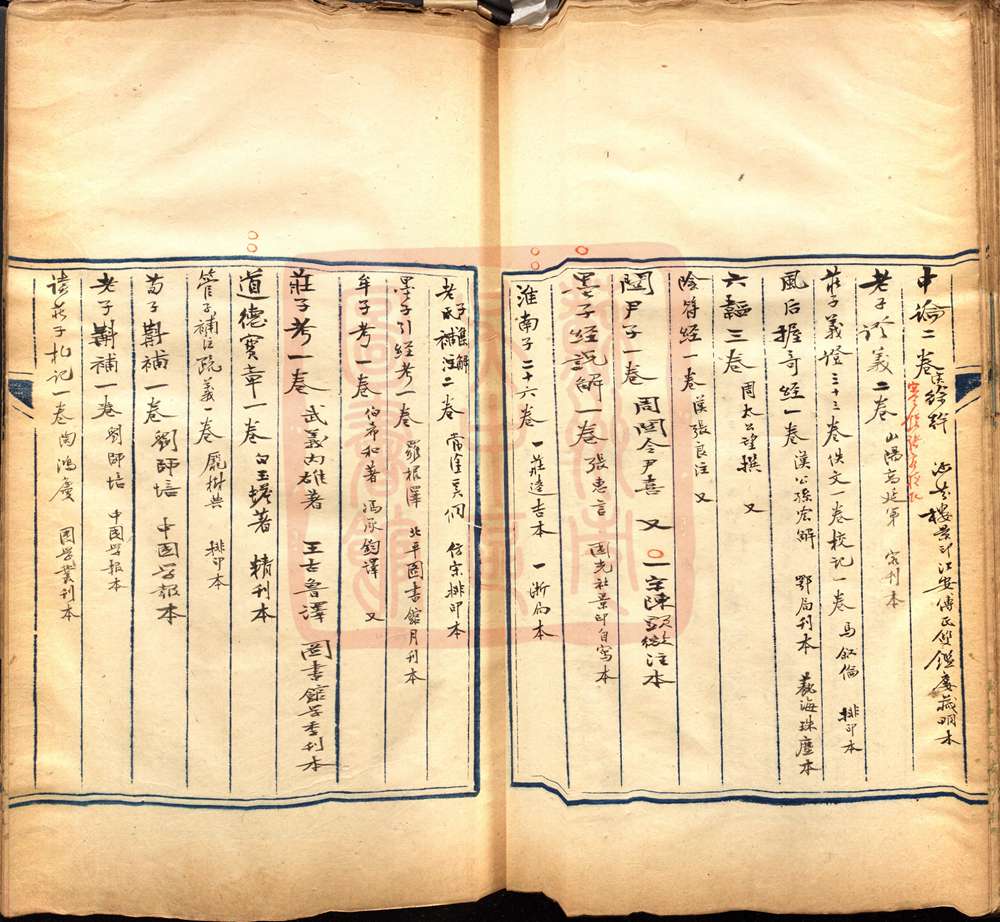 中論二卷 漢徐幹 涵芬樓景印江安傅氏雙鑑廔藏明本
老子證義二卷 山陽高延第 家刊本
莊子義證三十三卷佚文一卷校記一卷 馬叙倫 排印本
風后握奇經一卷 漢公孫宏解 鄂局刊本 藝海珠塵本
六韜三卷 周太公望撰 又
陰符經一卷 漢張良注 又
關尹子一卷 周関令尹喜 又 一宋陳顯微注本
墨子經説解一卷 張惠言 國光社景印自寫本
淮南子二十六卷 一莊逵吉本 一浙局本
老子二卷 當塗奚侗 仿宋排印本
墨子引經考一卷 羅根澤 北平圖書館月刊本
牟子考一卷 伯希和著 馮承鈞譯 又
莊子考一卷 武義內雄著 王古魯澤 圖書館學季刊本
道德寶章一卷 白玉蟾著 精刊本
管子補注疏義一卷 龐樹典 排印本
荀子斠補一卷 劉師培 中國學報本
老子斠補一卷 劉師培 中國學報本
讀莊子札記一卷 陶鴻慶 國學叢刊本